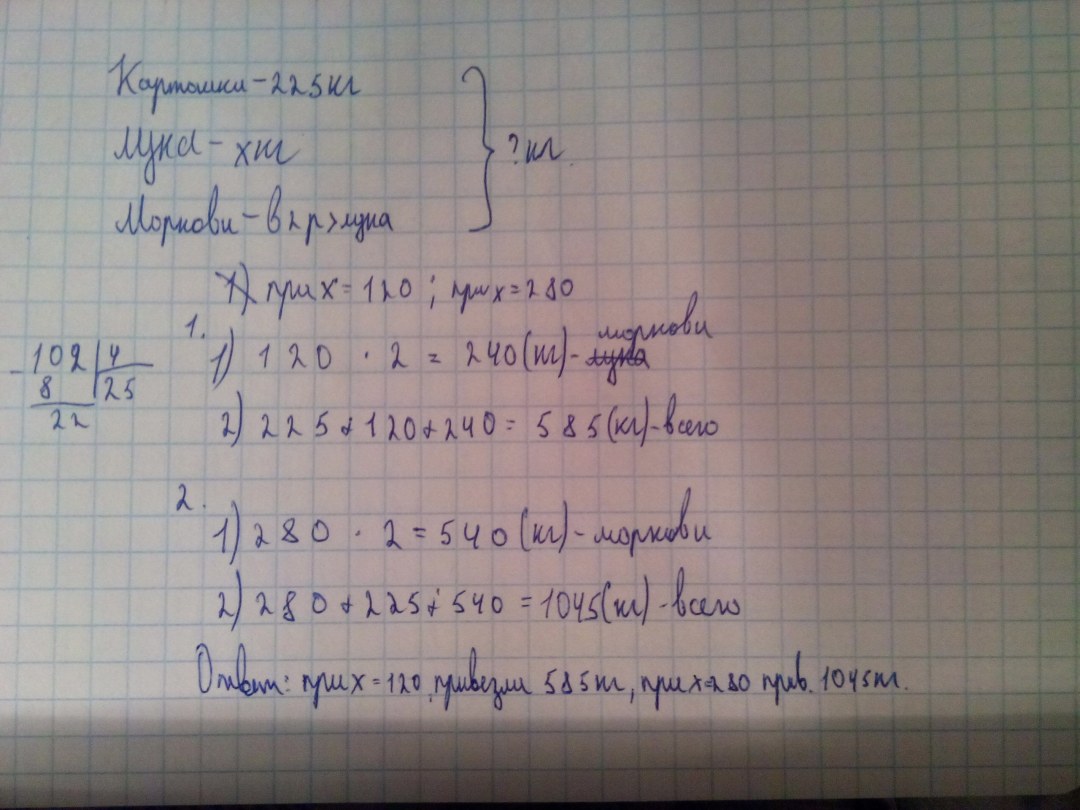 Картошки - 225 кг
Лука - x кг
Моркови - в 2 р > лука
? кг.
1) при x = 120 ; при x = 280
1.
1) 120 · 2 = 240 (кг) - лука моркови
2) 225 + 120 + 240 = 585 (кг) - всего
- 102 | 4
8 | 25
22
2.
1) 280 · 2 = 540 (кг) - моркови
2) 280 + 225 + 540 = 1045 (кг) - всего
Ответ: при x = 120 привезли 585 кг, при x = 280 прив. 1045 кг.